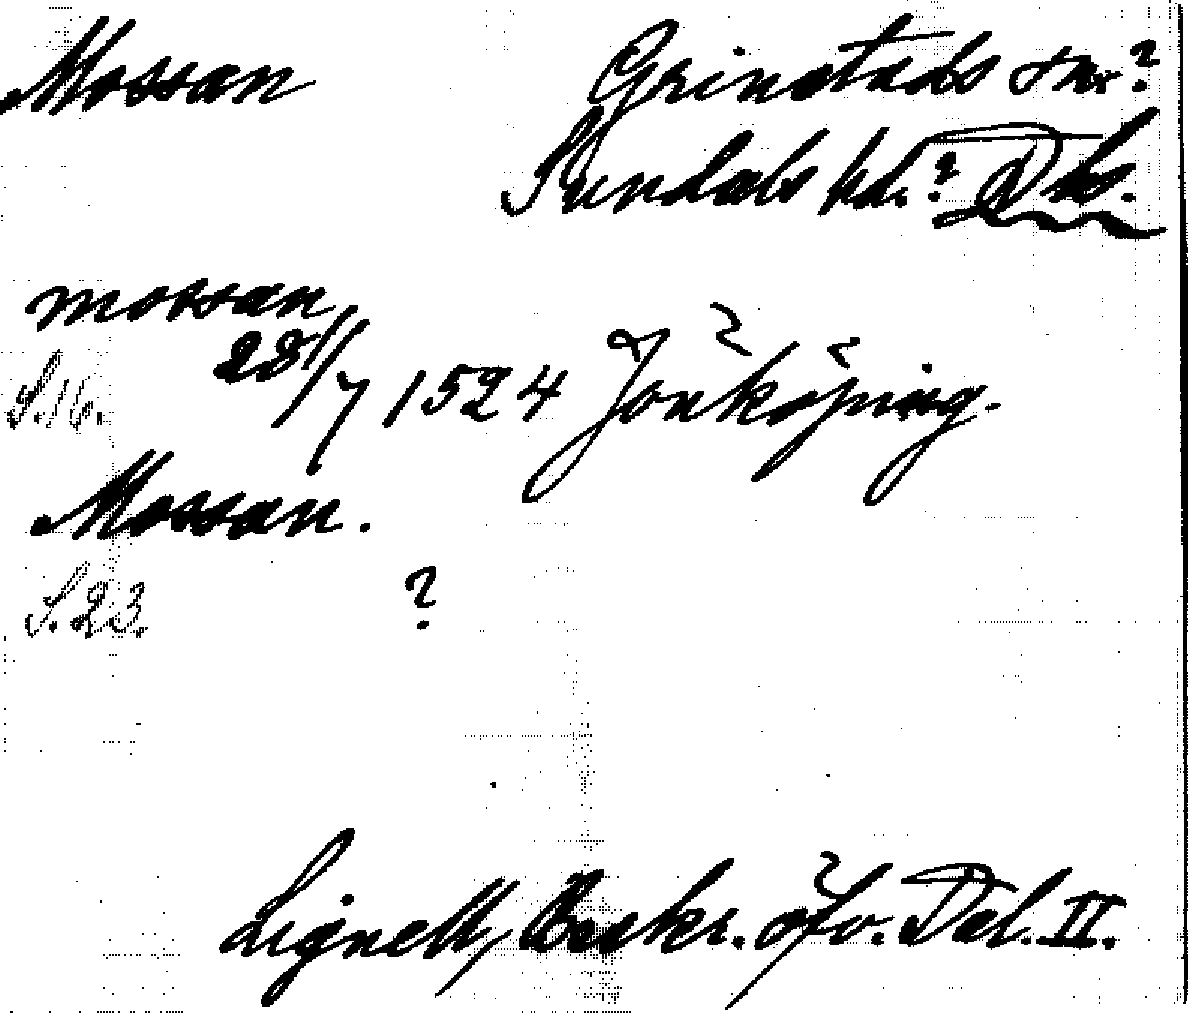 Mossan Grinstads sn?
Sundals hd.? Dls.
mossan
S.16. 28/7 1524 Jönköping.
Mossan.
S.23. ?
Lignell, Beskr. öfv. Dal. II.